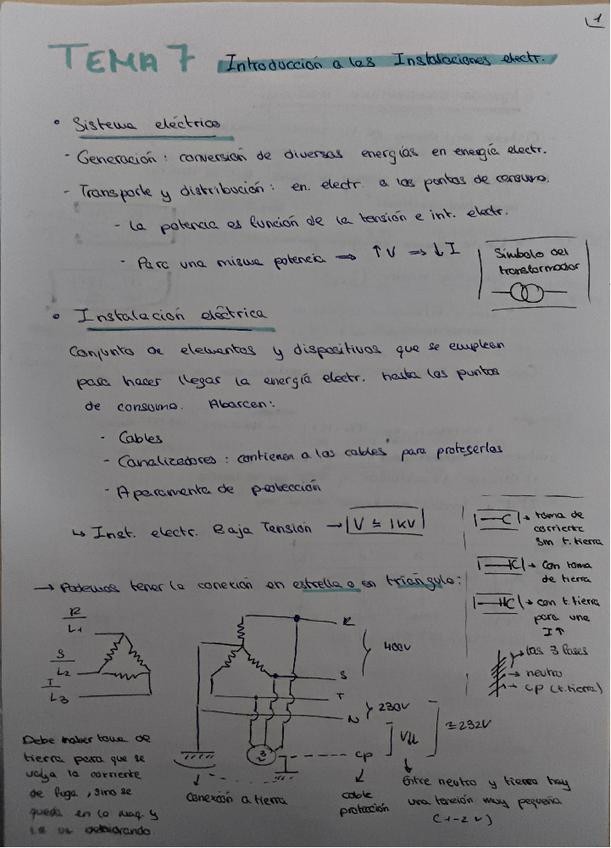 1
TEMA 7 Introducción a las Instalaciones electr.
• Sistema eléctrico
- Generación: conversión de diversas energías en energía electr.
- Transporte y distribución: en. electr. a los puntos de consumo.
- La potencia es función de la tensión e int. electr.
- Para una misma potencia ⇒ ↑V ⇒ ↓I
Símbolo del
transformador
• Instalación eléctrica
Conjunto de elementos y dispositivos que se emplean
para hacer llegar la energía electr. hasta los puntos
de consumo. Abarcan:
- Cables
- Canalizadores: contienen a los cables para protegerlos
- Aparamenta de protección
↳ Inst. electr. Baja Tensión → V ≤ 1kV
→ toma de
corriente
sin t. tierra
→ Con toma
de tierra
→ con t. tierra
para una
I↑
→ Las 3 fases
→ neutro
→ CP (t. tierra)
→ Podemos tener la conexión en estrella o en triángulo:
R
L1
S
L2
T
L3
R
S
T
N
CP
400V
230V
≈232V
3
Debe haber toma de
tierra para que se
vaya la corriente
de fuga, sino se
queda en la maq. y
deteriorando
conexión a tierra
cable
protección
Entre neutro y tierra hay
una tensión muy pequeña
(1-2 V)